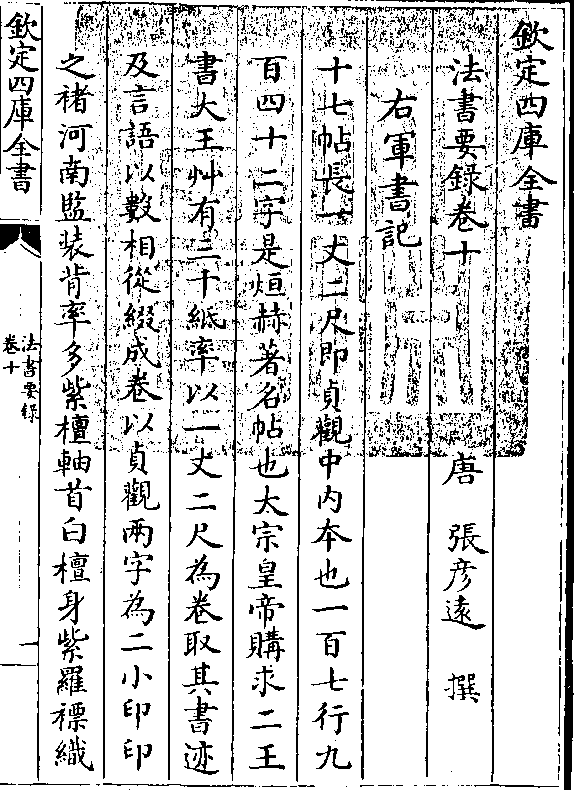 欽定四庫全書
法書要錄卷十
唐　張彥遠　撰
右軍書記
十七帖長一丈二尺即貞觀中内夲也一百七行九
百四十二字是烜赫著名帖也太宗皇帝購求二王
書大王艸有三千紙率以一丈二尺為卷取其書迹
及言語以數相從綴成卷以貞觀兩字為二小印印
之禇河南監装背率多紫檀軸首白檀身紫羅褾織
欽定四庫全書
法書要錄
卷十
一